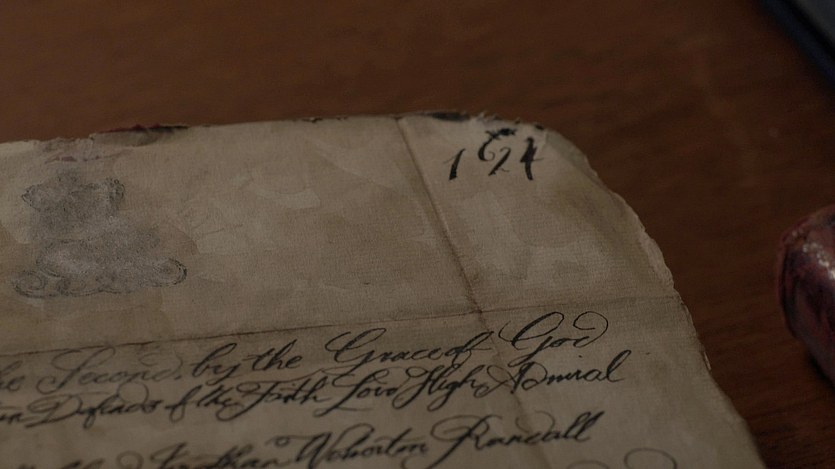 1624
he Second, by the Grace of God
Defender of the Faith Lord High Admiral
Jonathan Wolverton Randall